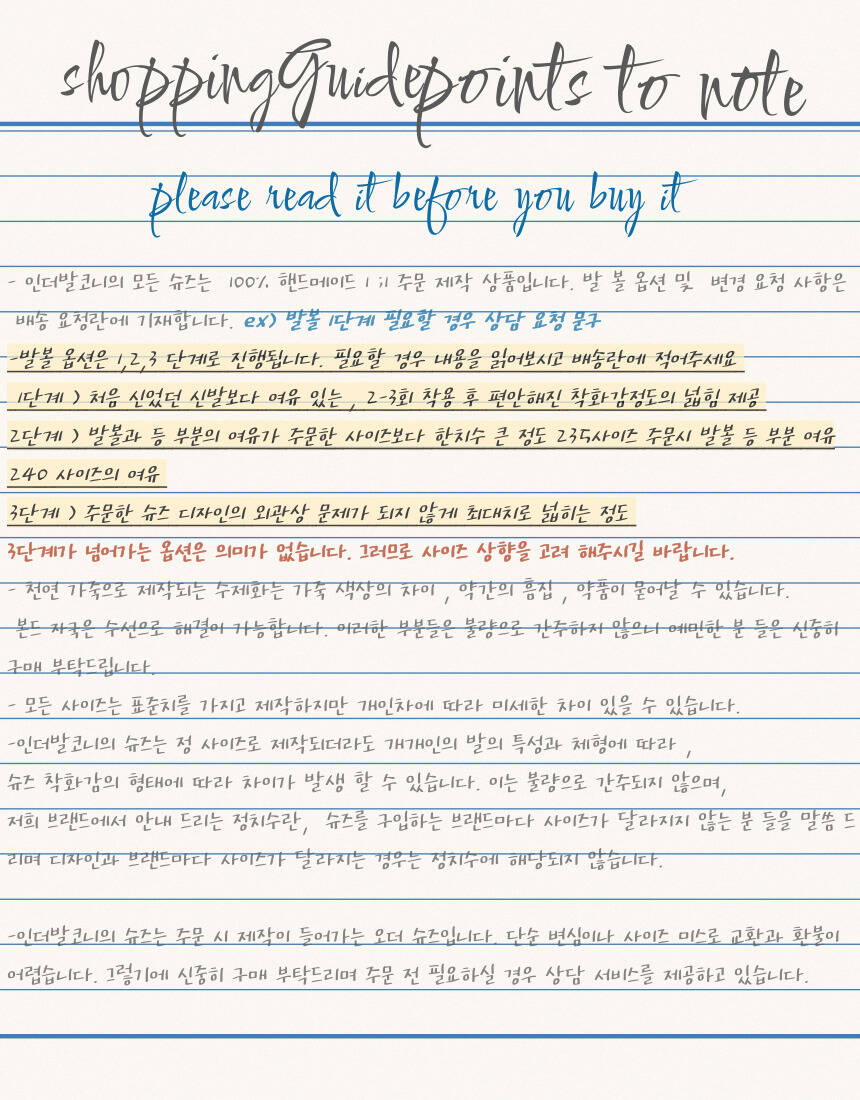 shoppingGuidepoints to note
please read it before you buy it
- 인더발코니의 모든 슈즈는 100% 핸드메이드 1 ;1 주문 제작 상품입니다. 발 볼 옵션 및 변경 요청 사항은
배송 요청란에 기재합니다. ex) 발볼 1단계 필요할 경우 상담 요청 문구
-발볼 옵션은 1,2,3 단계로 진행됩니다. 필요할 경우 내용을 읽어보시고 배송란에 적어주세요
1단계 ) 처음 신었던 신발보다 여유 있는 , 2-3회 착용 후 편안해진 착화감정도의 넓힘 제공
2단계 ) 발볼과 등 부분의 여유가 주문한 사이즈보다 한치수 큰 정도 235사이즈 주문시 발볼 등 부분 여유
240 사이즈의 여유
3단계 ) 주문한 슈즈 디자인의 외관상 문제가 되지 않게 최대치로 넓히는 정도
3단계가 넘어가는 옵션은 의미가 없습니다. 그러므로 사이즈 상향을 고려 해주시길 바랍니다.
- 천연 가죽으로 제작되는 수제화는 가죽 색상의 차이 , 약간의 흠집 , 약품이 묻어날 수 있습니다.
본드 자국은 수선으로 해결이 가능합니다. 이러한 부분들은 불량으로 간주하지 않으니 예민한 분 들은 신중히
구매 부탁드립니다.
- 모든 사이즈는 표준치를 가지고 제작하지만 개인차에 따라 미세한 차이 있을 수 있습니다.
-인더발코니의 슈즈는 정 사이즈로 제작되더라도 개개인의 발의 특성과 체형에 따라 ,
슈즈 착화감의 형태에 따라 차이가 발생 할 수 있습니다. 이는 불량으로 간주되지 않으며,
저희 브랜드에서 안내 드리는 정치수란, 슈즈를 구입하는 브랜드마다 사이즈가 달라지지 않는 분 들을 말씀 드
리며 디자인과 브랜드마다 사이즈가 달라지는 경우는 정치수에 해당되지 않습니다.
-인더발코니의 슈즈는 주문 시 제작이 들어가는 오더 슈즈입니다. 단순 변심이나 사이즈 미스로 교환과 환불이
어렵습니다. 그렇기에 신중히 구매 부탁드리며 주문 전 필요하실 경우 상담 서비스를 제공하고 있습니다.